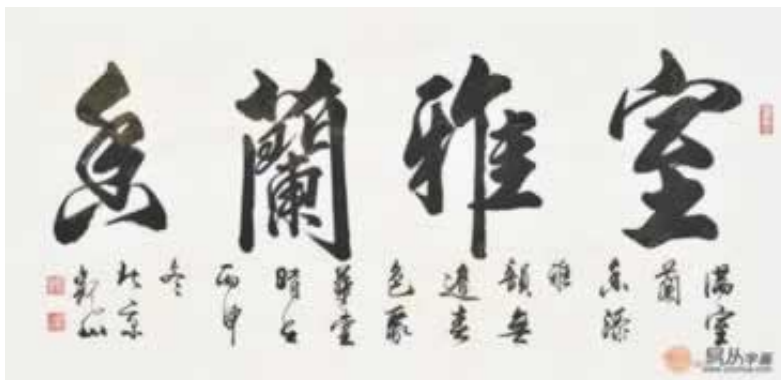 室雅蘭香
满室
蘭
香添
雅
韻無
邊春
色聚
華堂
時在
丙申
冬
北京
易从字画